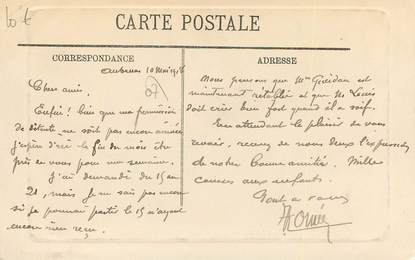 10 €
CARTE POSTALE
CORRESPONDANCE
ADRESSE
10 Mai 1918
07
Chers amis,
Enfin! bien que ma permission
de détente ne soit pas encore arrivée
j'espère d'ici la fin du mois être
près de vous pour une semaine.
J'ai demandé du 15 au
21, mais je ne sais pas encore
si je pourrai partir le 15 n'ayant
encore rien reçu.
Nous pensons que Mme est
maintenant rétablie et que M. Louis
doit crier bien fort quand il a soif.
En attendant le plaisir de vous
revoir, recevez de nous deux l'expression
de notre bonne amitié. Mille
caresses aux enfants.
Tout à vous